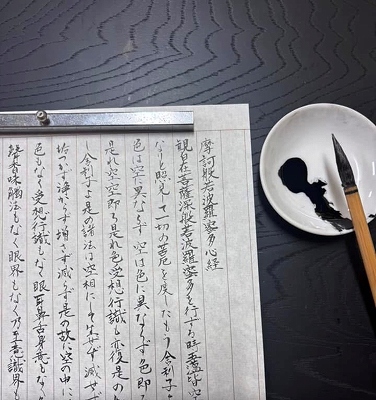 摩訶般若波羅蜜多心経
観自在菩薩深般若波羅蜜多を行ずる時五蘊皆空
なりと照見して一切の苦厄を度したもう舎利子よ
色は空に異ならず空は色に異ならず色即
是れ空空即ち是れ色受想行識も亦復是の
し舎利子よ是の諸法は空相にして生ぜず滅せず
垢つかず浄からず増さず減らず是の故に空の中に
色もなく受想行識もなく眼耳鼻舌身意もな
聲香味触法もなく眼界もなく乃至意識界も